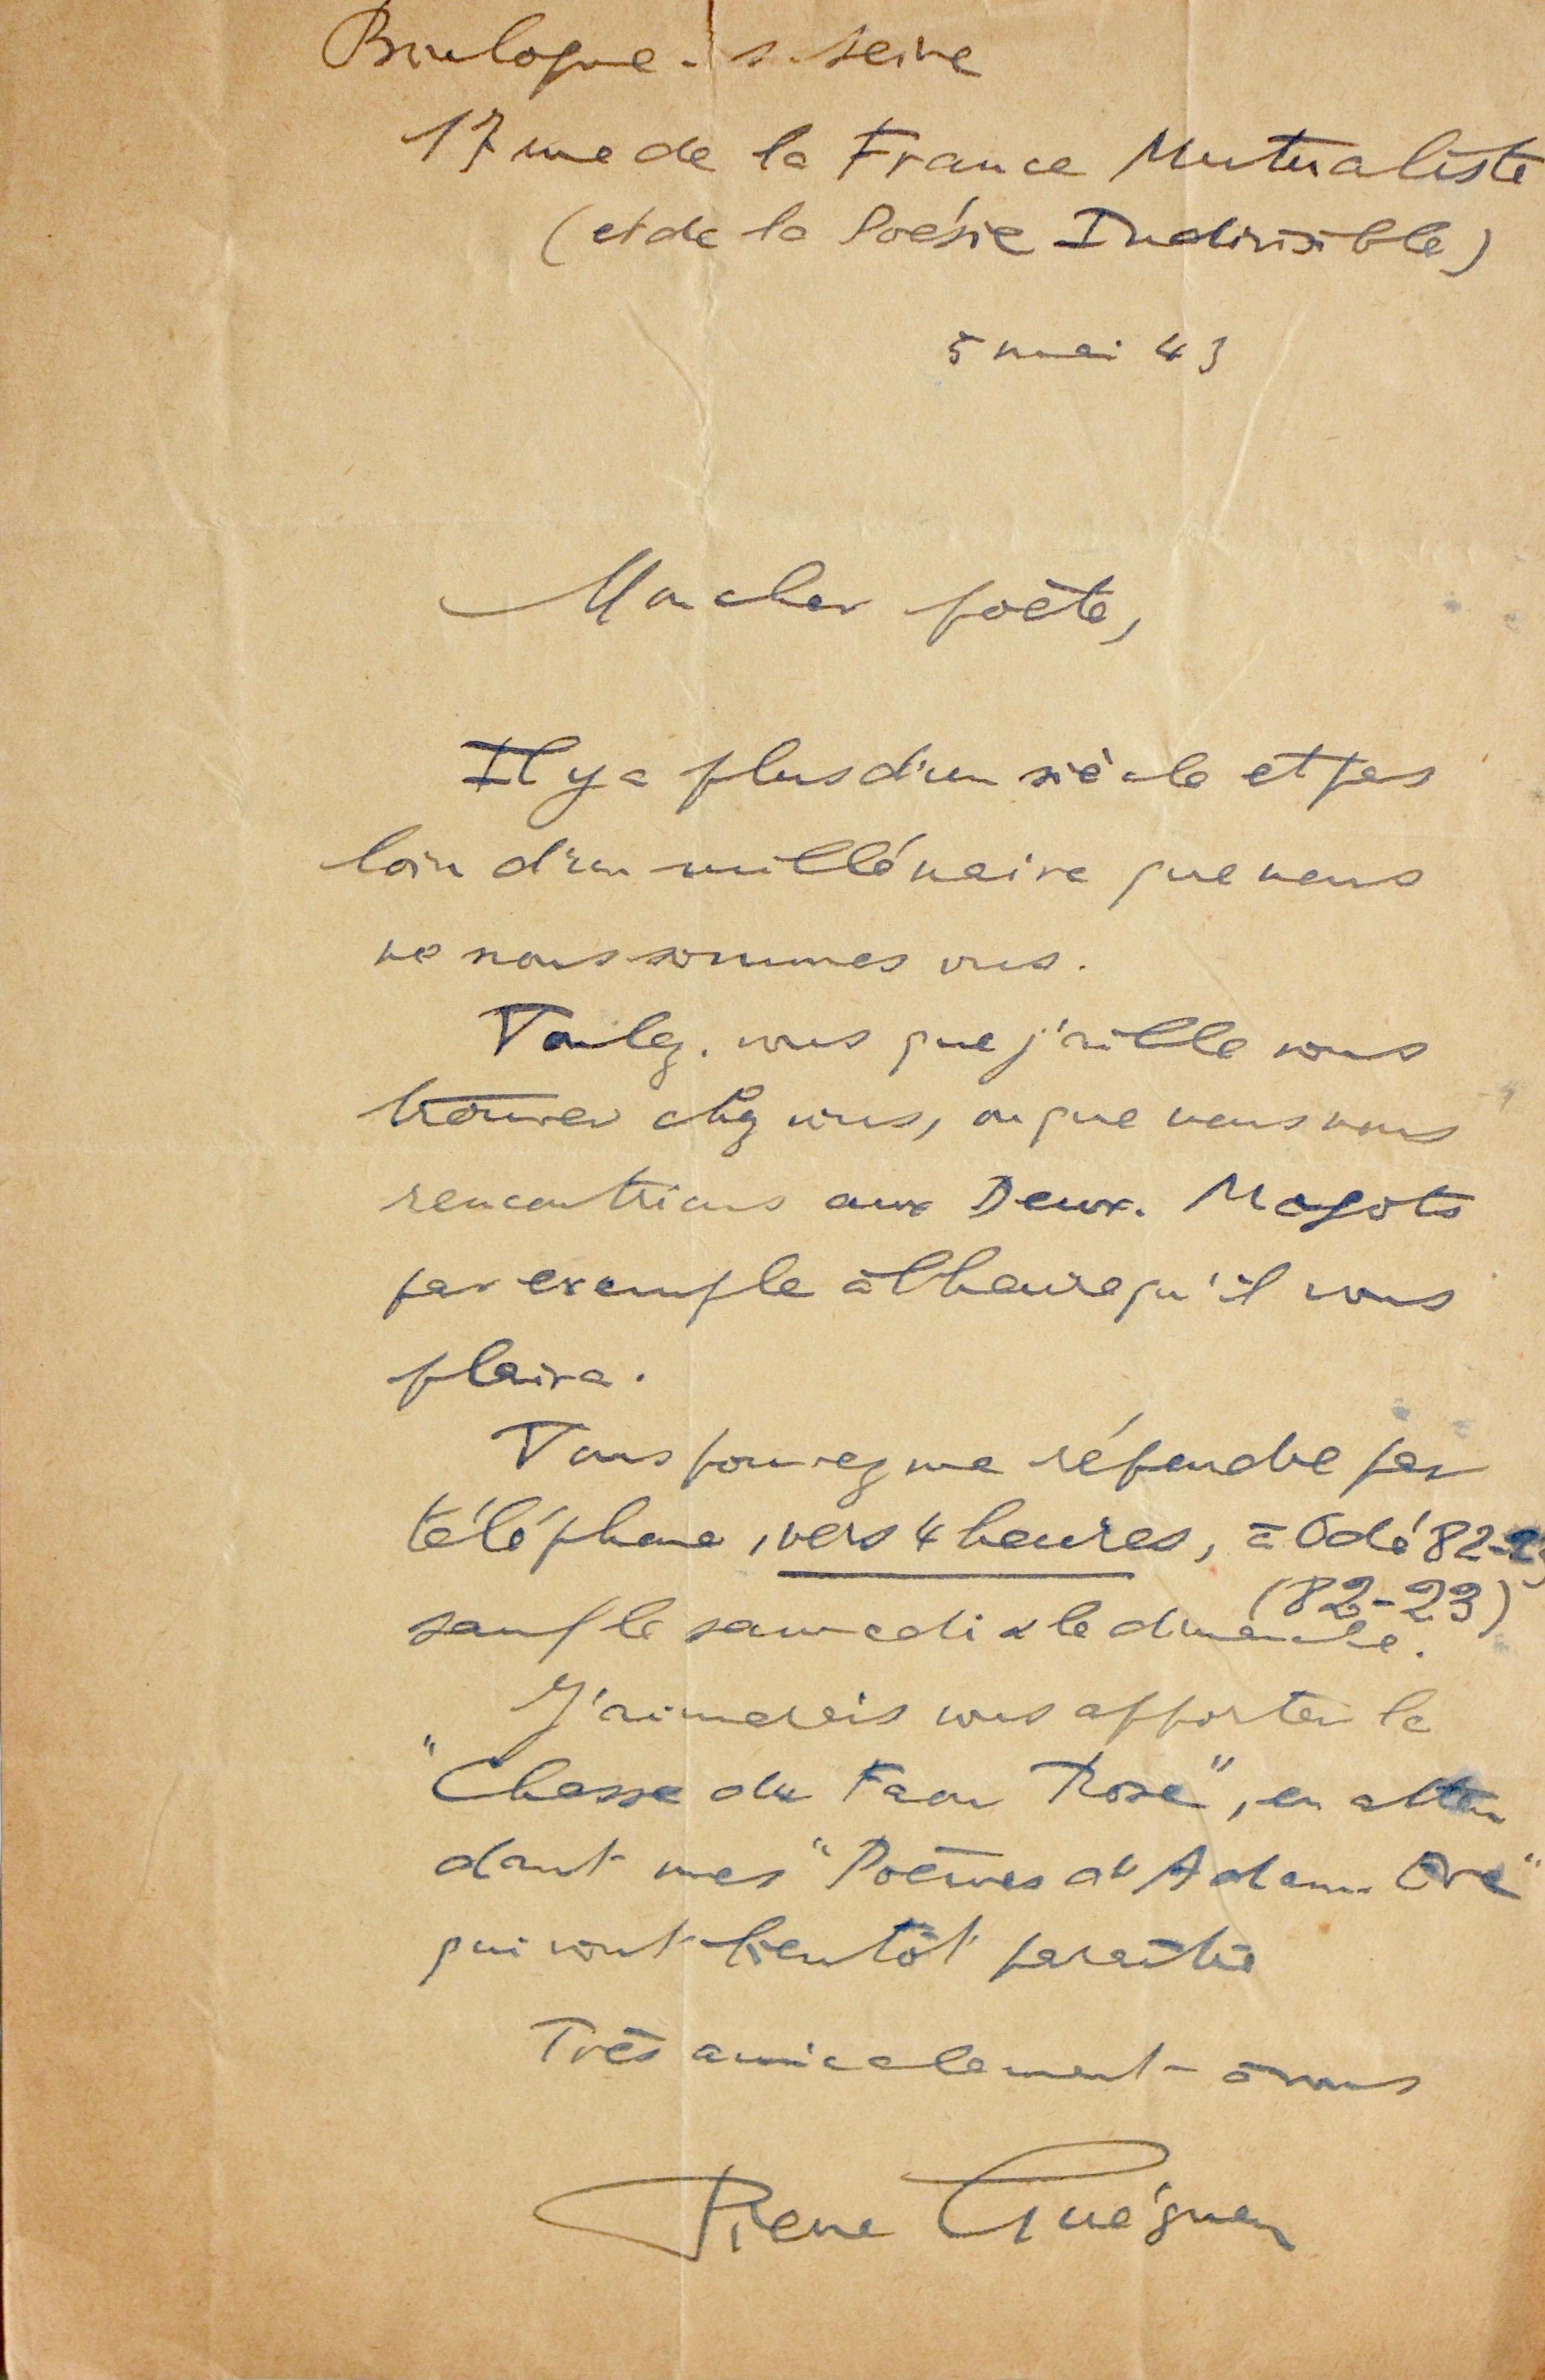 Boulogne-s-Seine
17 rue de la France Mutualiste
(et de la Poésie Indivisible)
5 mai 43
Mon cher poète,
Il y a plus d'un siècle et pas
loin d'un millénaire que nous
ne nous sommes vus.
Voulez-vous que j'aille vous
trouver chez vous, ou que nous nous
rencontrions aux Deux-Magots
par exemple à l'heure qu'il vous
plaira.
Vous pouvez me répondre par
téléphone, vers 4 heures, à Odé 82-23
(82-23)
sauf le samedi & le dimanche.
J'aimerais vous apporter la
"Chasse du Faon Rose", en atten
dant mes "Poèmes d'Adam Ève"
qui vont bientôt paraître
Très amicalement à vous
Pierre Guéguen